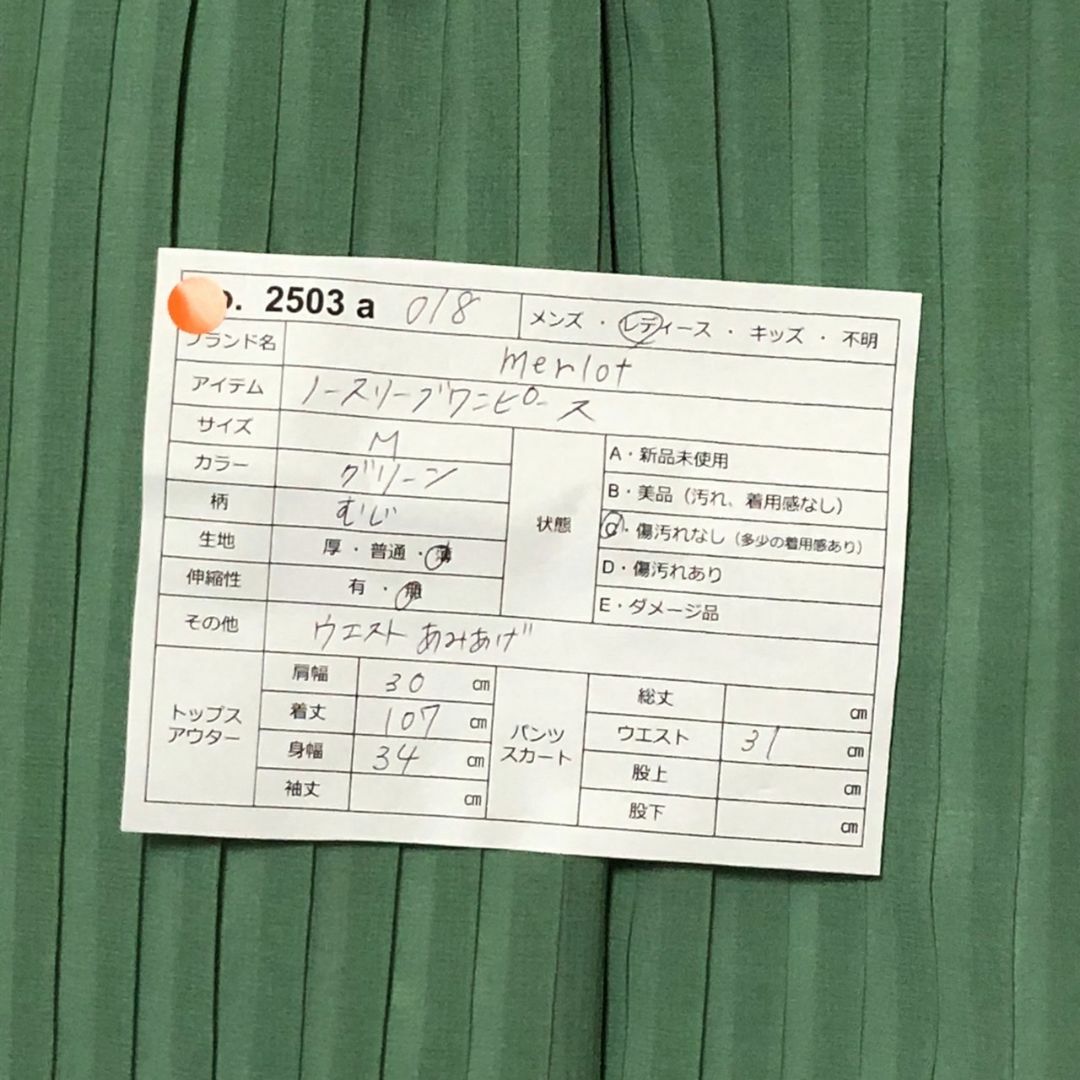 o. 2503 a 018 メンズ ・ レディース ・ キッズ ・ 不明
ブランド名 merlot
アイテム ノースリーブワンピース
サイズ M
カラー グリーン
柄 むじ
生地 厚・普通・薄
伸縮性 有 ・ 無
状態
A・新品未使用
B・美品（汚れ、着用感なし）
C・傷汚れなし（多少の着用感あり）
D・傷汚れあり
E・ダメージ品
その他 ウエストあみあげ
トップス
アウター
肩幅 30 cm
着丈 107 cm
身幅 34 cm
袖丈 cm
パンツ
スカート
総丈 cm
ウエスト 31 cm
股上 cm
股下 cm